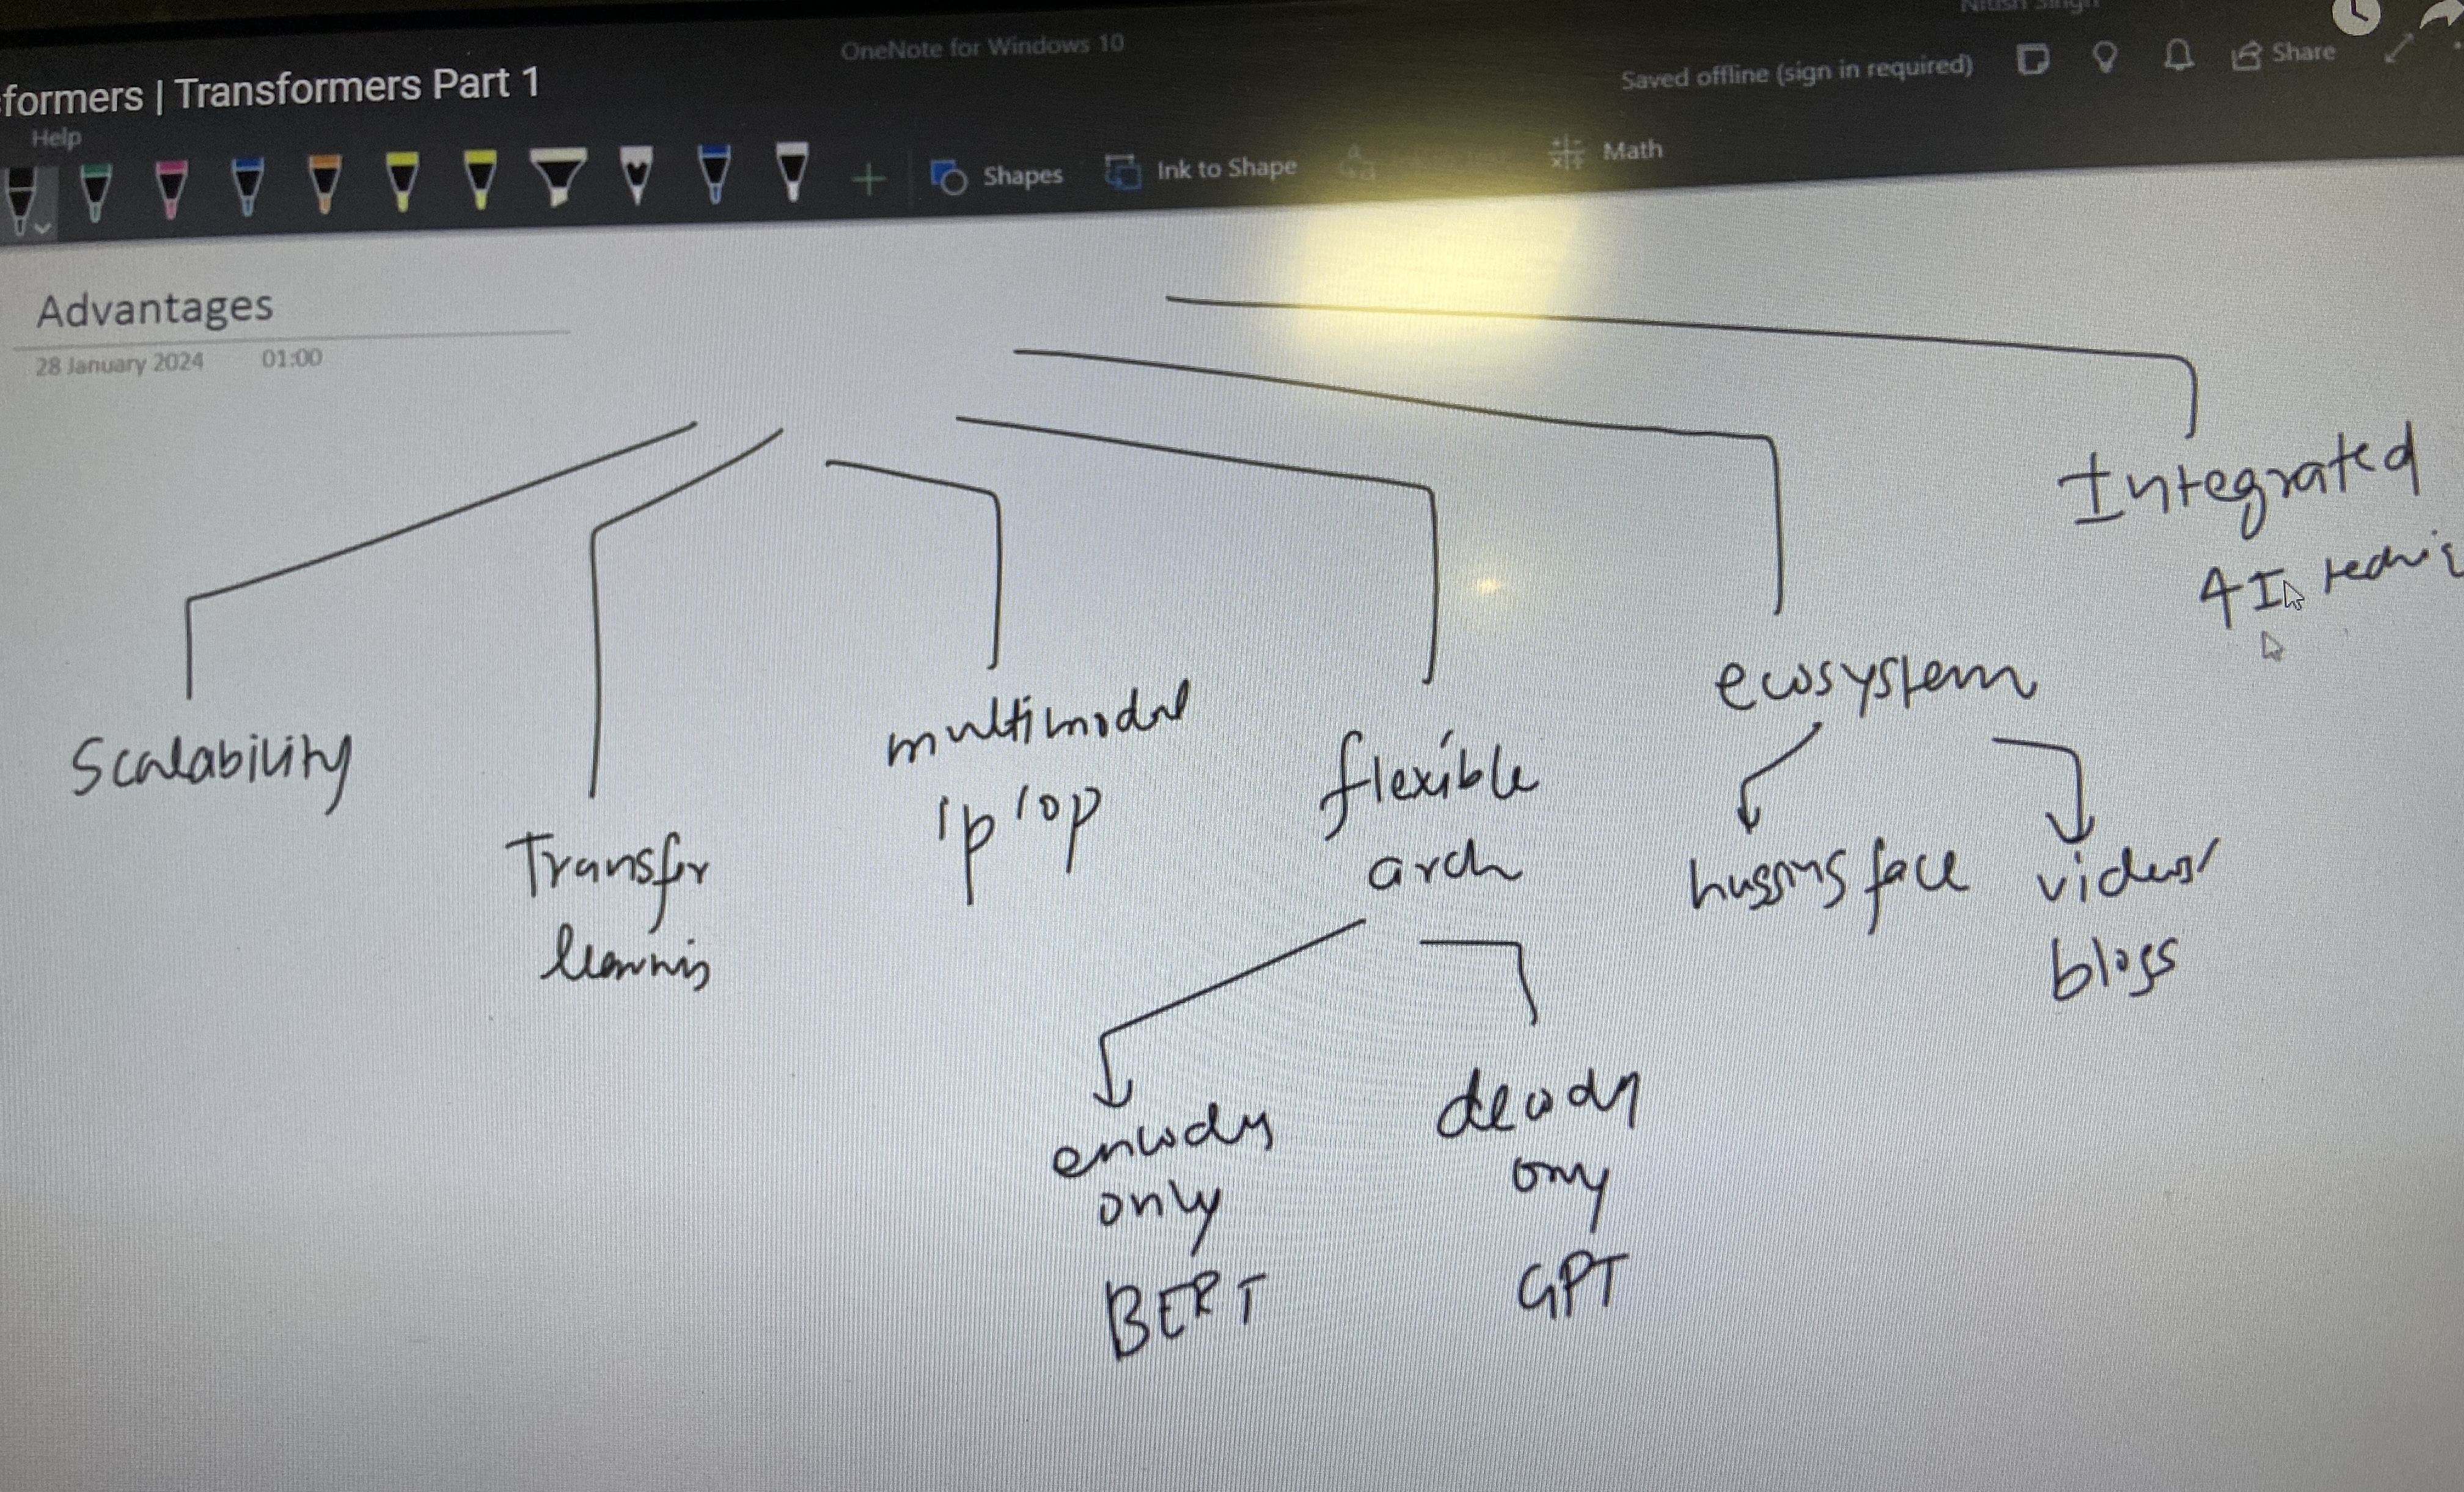 formers | Transformers Part 1
OneNote for Windows 10
Nitish Singh
Saved offline (sign in required)
Share
Help
Shapes
Ink to Shape
Math
Advantages
28 January 2024 01:00
Scalability
Transfer
learning
multimodal
ip/op
flexible
arch
encoder
only
BERT
decoder
only
GPT
ecosystem
hugging face
videos/
blogs
Integrated
AI